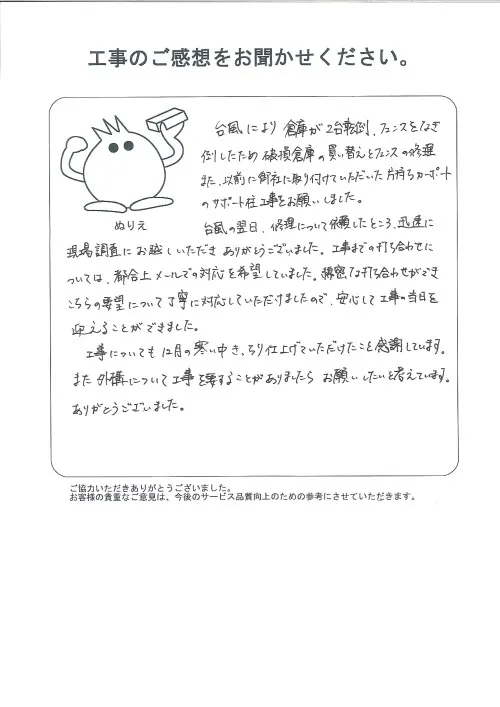 工事のご感想をお聞かせください。
台風により 倉庫が2台転倒、フェンスをなぎ
倒したため 破損倉庫の買い替えとフェンスの修理
また、以前に御社に取り付けていただいた片持ちカーポート
のサポート柱工事をお願いしました。
ぬりえ
台風の翌日、修理について依頼したところ、迅速に
現場調査にお越しいただき ありがとうございました。工事までの打ち合わせに
ついては、都合上メールでの対応を希望していました。綿密な打ち合わせができ
こちらの要望について丁寧に対応していただけましたので、安心して工事の当日を
迎えることができました。
工事についても 12月の寒い中きっちり仕上げていただけたこと感謝しています。
また 外構について工事を要することがありましたら お願いしたいと考えています。
ありがとうございました。
ご協力いただきありがとうございました。
お客様の貴重なご意見は、今後のサービス品質向上のための参考にさせていただきます。